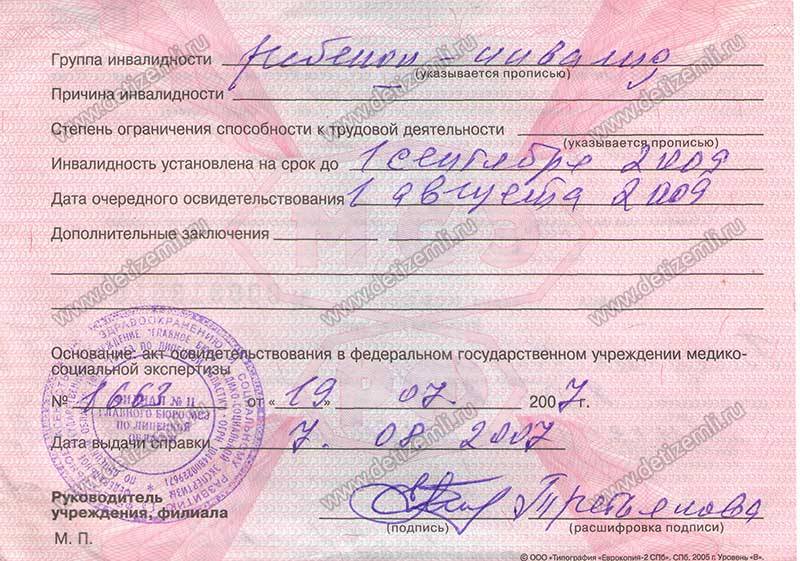 Группа инвалидности ребенок - инвалид
(указывается прописью)
Причина инвалидности —
Степень ограничения способности к трудовой деятельности
(указывается прописью)
Инвалидность установлена на срок до 1 сентября 2009
Дата очередного освидетельствования 1 августа 2009
Дополнительные заключения
Основание: акт освидетельствования в федеральном государственном учреждении медико-
социальной экспертизы
№ 1667 от «19» 07. 2007 г.
Дата выдачи справки 7. 08. 2007
Руководитель
учреждения, филиала
Третьякова
(подпись) (расшифровка подписи)
М. П.
© ООО «Типография «Еврокопия-2 СПб», СПб, 2005 г. Уровень «В».
ФИЛИАЛ № 11
ГЛАВНОГО БЮРО МСЭ
ПО ЛИПЕЦКОЙ
ОБЛАСТИ
МСЭ
www.detizemli.ru